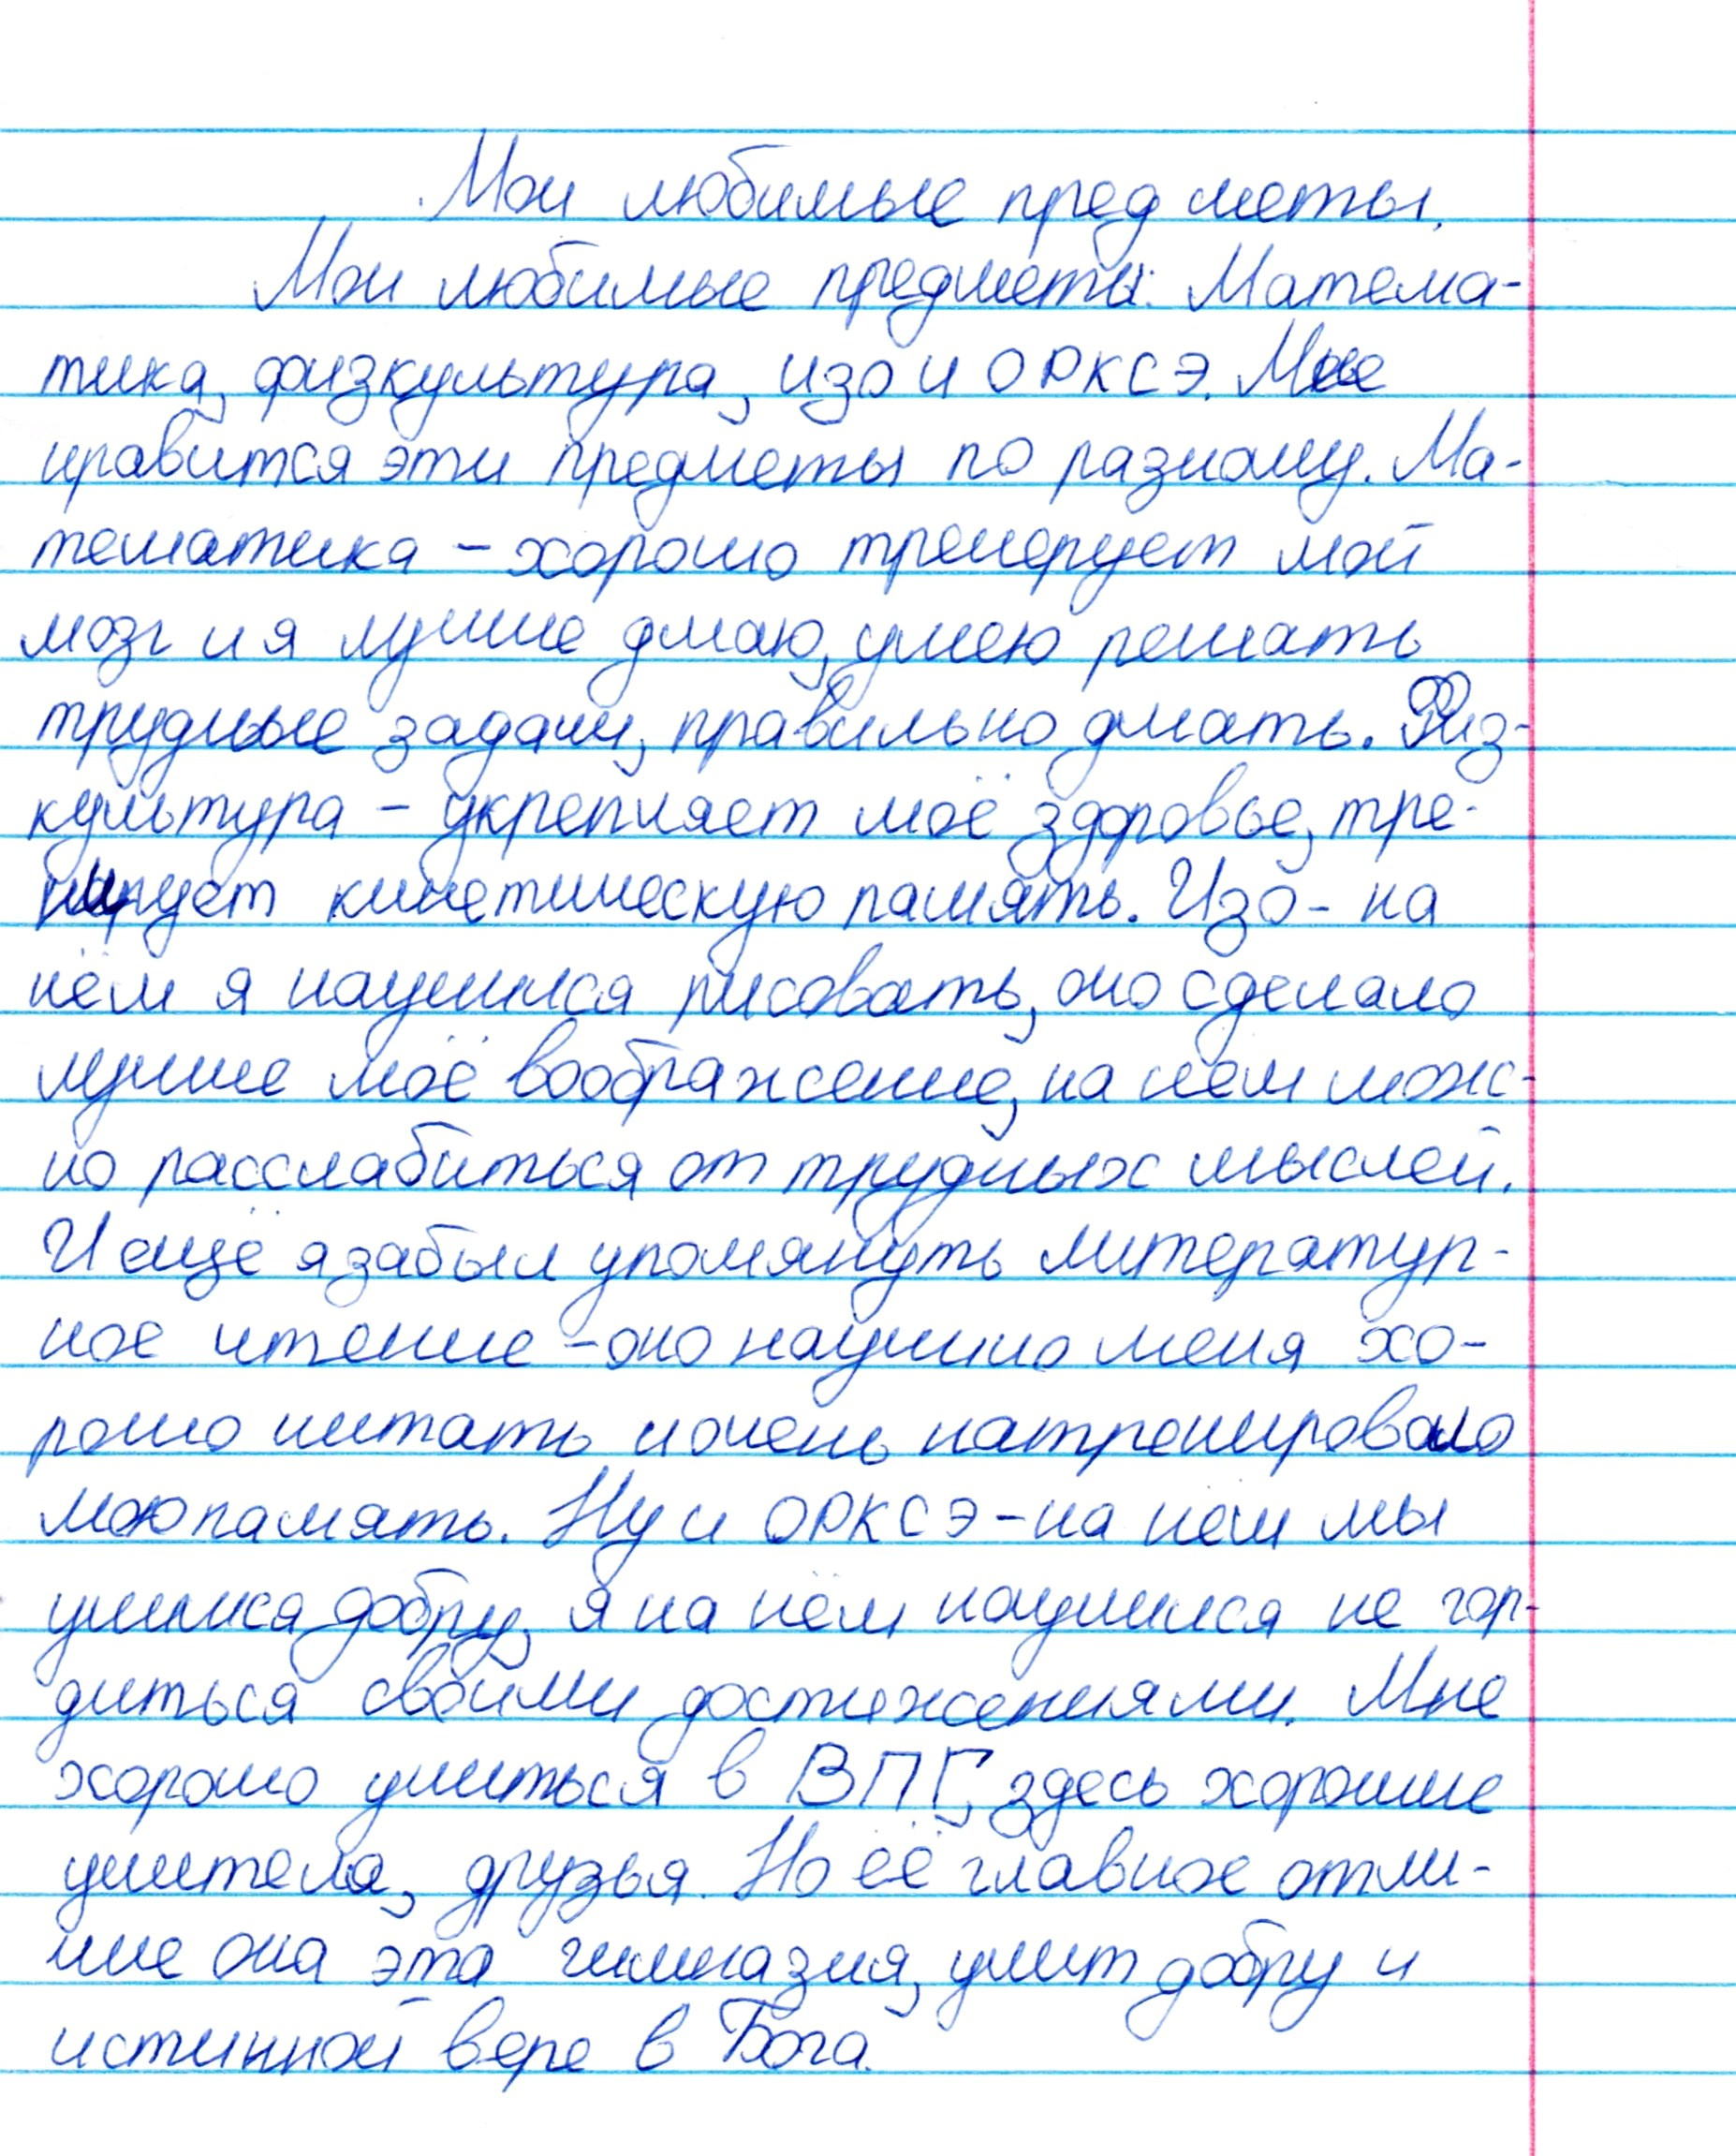 Мои любимые предметы.
Мои любимые предметы: Матема-
тика, физкультура, изо и ОРКСЭ. Мне
нравится эти предметы по разному. Ма-
тематика – хорошо тренерует мой
мозг и я лучше дмаю, умею решать
трудные задачи, правильно дмать. Физ-
культура – укрепляет моё здоровье, тре-
нирует кинетическую память. Изо – на
нём я научился рисовать, оно сделало
лучше моё воображение, на нём мож-
но расслабиться от трудных мыслей.
И ещё я забыл упомянуть литератур-
ное чтение – оно научило меня хо-
рошо читать и очень натренировало
мою память. Ну и ОРКСЭ – на нём мы
учимся добру, я на нём научился не гор-
диться своими достижениями. Мне
хорошо учиться в ВПГ, здесь хорошие
учителя, друзья. Но её главное отли-
чие она эта гимназия, учит добру и
истинной вере в Бога.